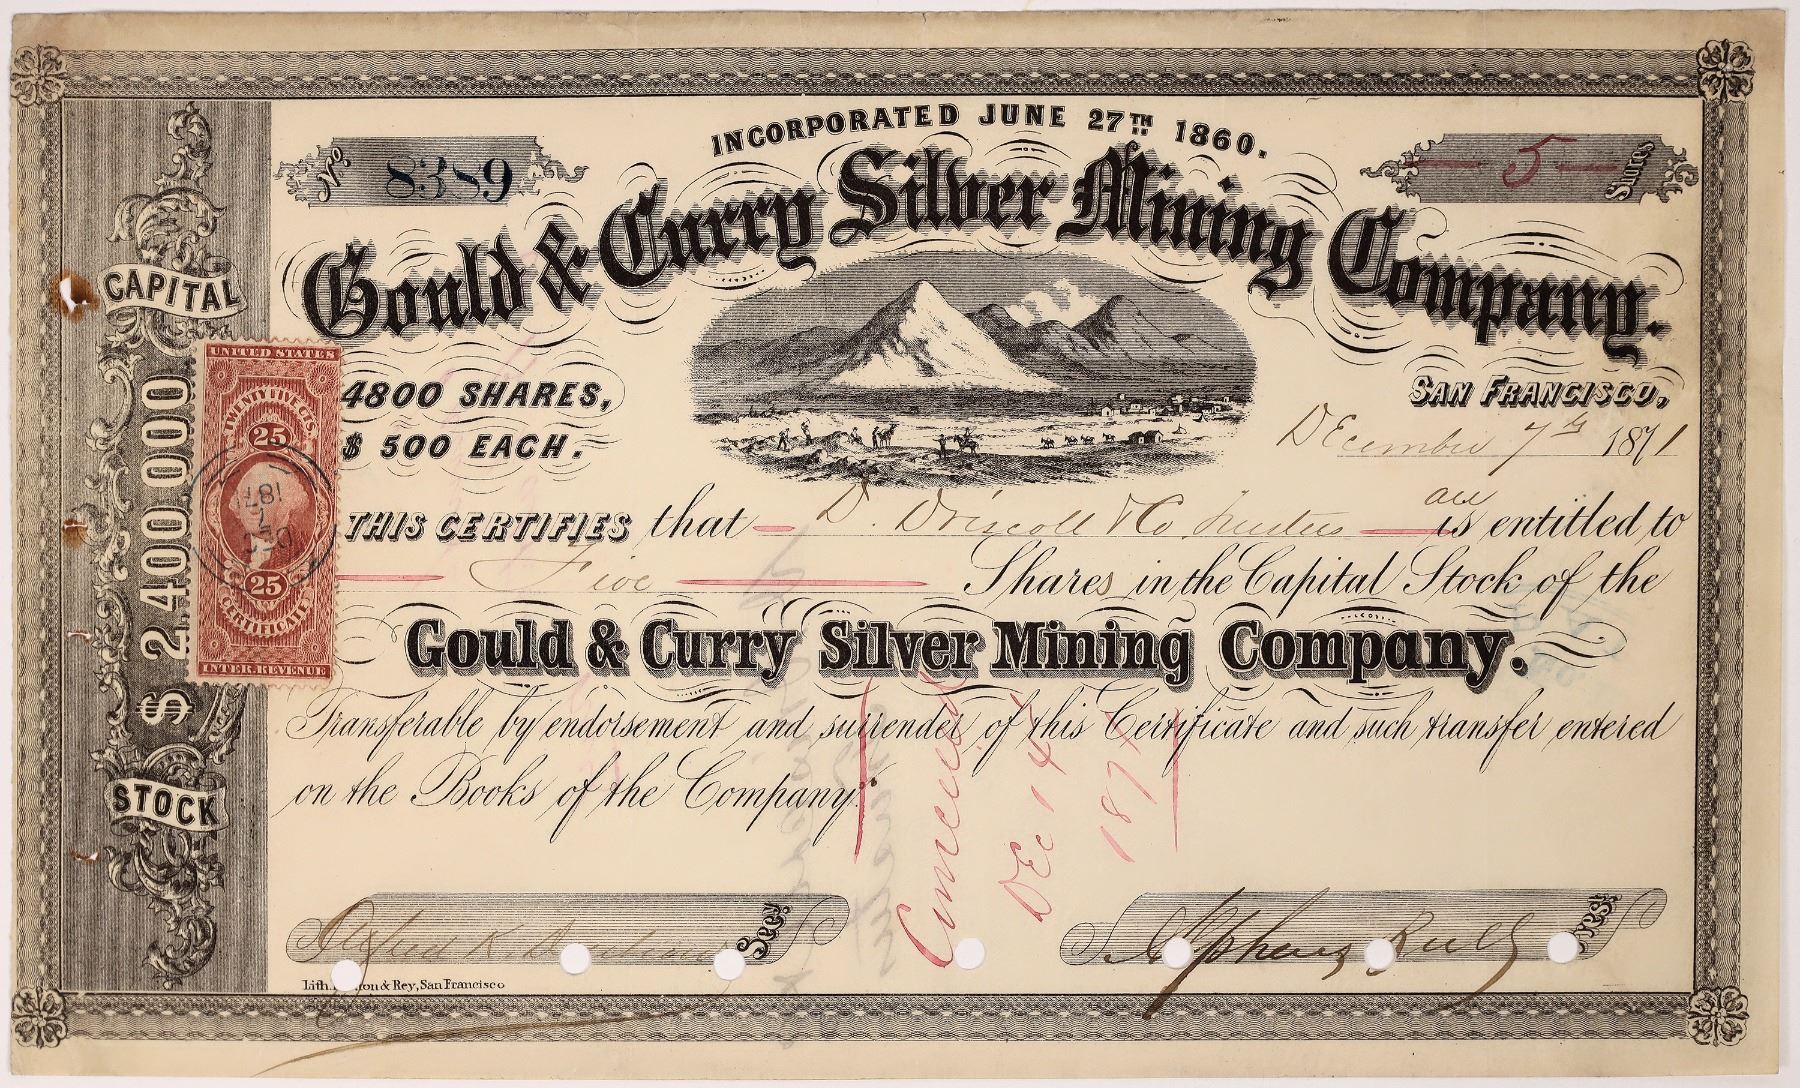 INCORPORATED JUNE 27TH 1860.
No. 8389
— 5 — Shares
Gould & Curry Silver Mining Company.
CAPITAL
$ 2 400 000
STOCK
UNITED STATES
TWENTY FIVE CTS.
25
DEC
7
1871
25
CERTIFICATE
INTER. REVENUE
4800 SHARES,
$ 500 EACH.
SAN FRANCISCO,
December 7th 1871
THIS CERTIFIES that — D. Driscoll & Co Trustees — are is entitled to
— Five — Shares in the Capital Stock of the
Gould & Curry Silver Mining Company.
Transferable by endorsement and surrender of this Certificate and such transfer entered
on the Books of the Company.
Cancelled
Dec 14
1871
Alfred K. Secy.
Prest.
Lith. & Rey, San Francisco